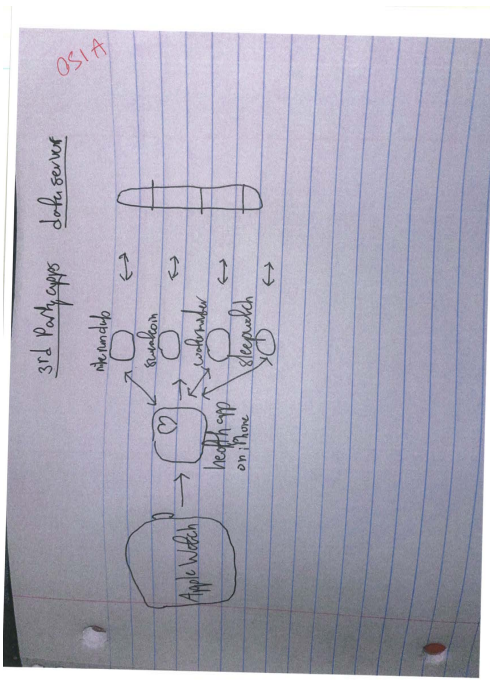 QS1 A
3rd Party apps
data server
nikerunclub
waterminder
sleepwatch
health app
on iPhone
Apple Watch